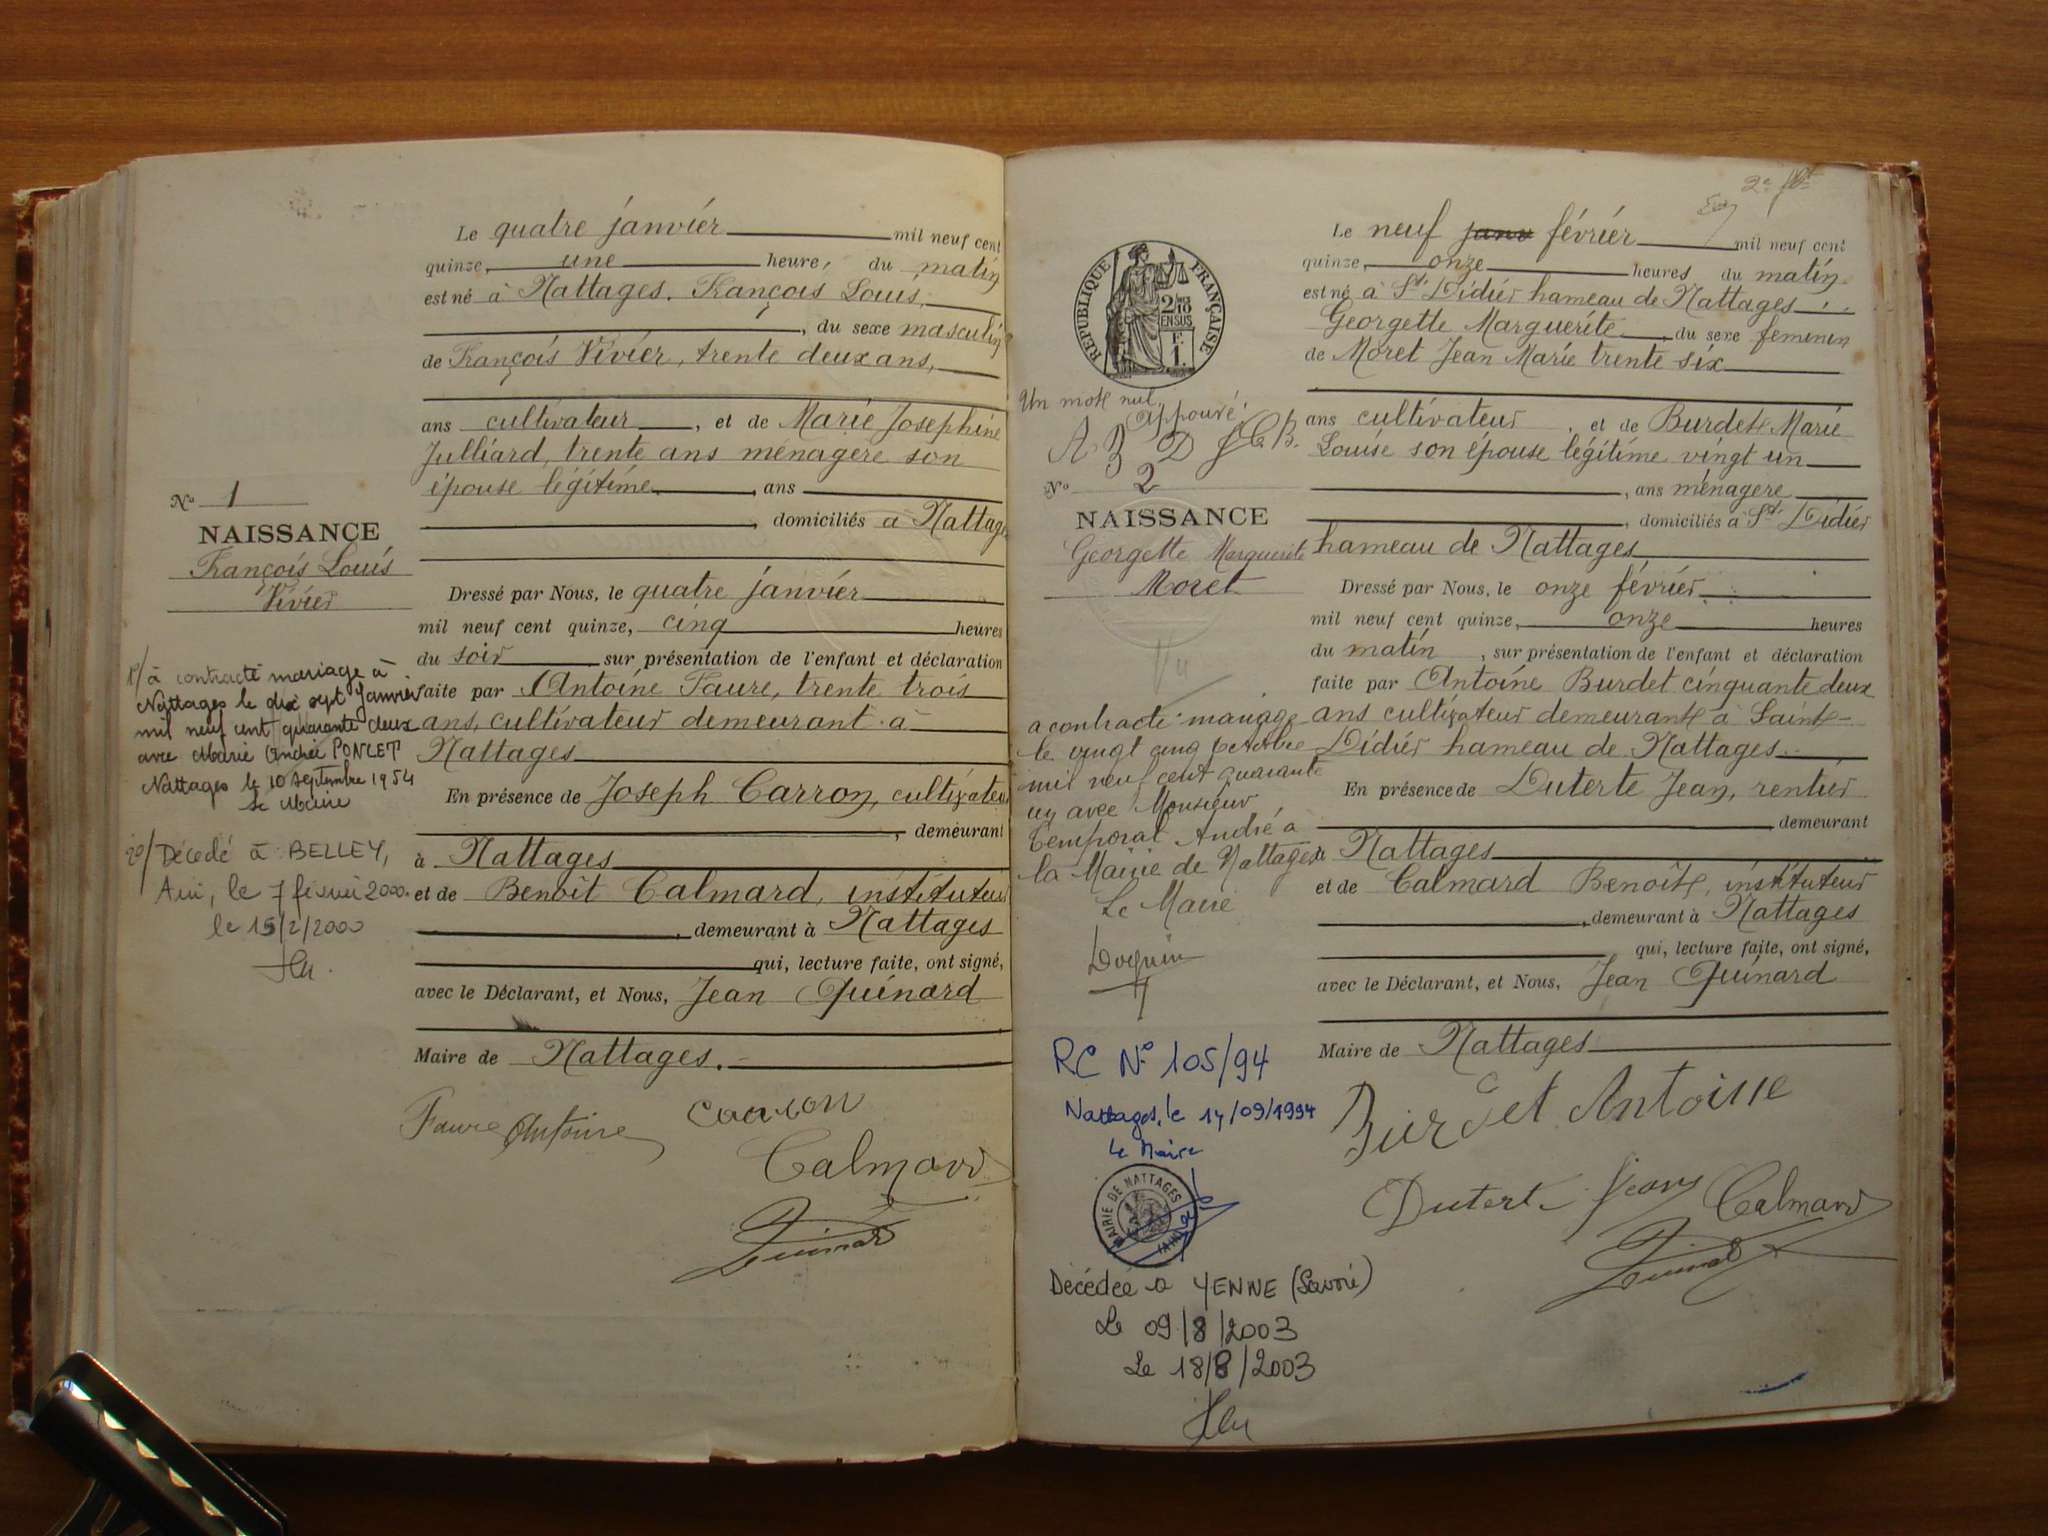 Le quatre janvier mil neuf cent
quinze, une heure, du matin
est né à Nattages. François Louis,
, du sexe masculin
de François Vivier, trente deux ans,
ans cultivateur, et de Marie Josephine
Julliard, trente ans ménagère son
épouse légitime, ans
, domiciliés à Nattages
Nº 1
NAISSANCE
François Louis
Vivier
Dressé par Nous, le quatre janvier
mil neuf cent quinze, cinq heures
du soir sur présentation de l'enfant et déclaration
faite par Antoine Faure, trente trois
ans, cultivateur demeurant à
Nattages
En présence de Joseph Carron, cultivateur
, demeurant
à Nattages
et de Benoit Calmard, instituteur
, demeurant à Nattages
qui, lecture faite, ont signé,
avec le Déclarant, et Nous, Jean Quinard
Maire de Nattages.
1º/ à contracté mariage à
Nattages le dix sept Janvier
mil neuf cent quarante deux
avec Marie Andrée PONCET
Nattages le 10 septembre 1954
Le Maire
2º/ Décédé à BELLEY,
Ain, le 7 février 2000.
le 15/2/2000
Faure Antoine Caaron
Calmard
Quinard
Le neuf janv février mil neuf cent
quinze, onze heures du matin
est né à St Didier hameau de Nattages
Georgette Marguerite, du sexe feminin
de Moret Jean Marie trente six
ans cultivateur, et de Burdet Marie
Louise son épouse légitime vingt un
, ans ménagère
, domiciliés à St Didier
hameau de Nattages
RÉPUBLIQUE FRANÇAISE
2/10 EN SUS
F. 1.
Un mot nul,
Approuvé.
A B D J C B.
Nº 2
NAISSANCE
Georgette Marguerite
Moret
Vu
Dressé par Nous, le onze février
mil neuf cent quinze, onze heures
du matin, sur présentation de l'enfant et déclaration
faite par Antoine Burdet cinquante deux
ans cultivateur demeurant à Saint-
Didier hameau de Nattages
En présence de Duterte Jean, rentier
demeurant
à Nattages
et de Calmard Benoit, instituteur
, demeurant à Nattages
qui, lecture faite, ont signé,
avec le Déclarant, et Nous, Jean Quinard
Maire de Nattages
a contracté mariage
le vingt cinq octobre
mil neuf cent quarante
un avec Monsieur
Temporal André à
la Mairie de Nattages
Le Maire
RC Nº 105/94
Nattages, le 14/09/1994
Le Maire
MAIRIE DE NATTAGES
(AIN)
Décédée à YENNE (Savoie)
Le 09/8/2003
Le 18/8/2003
Burdet Antoine
Duterte Jean Calmard
Quinard